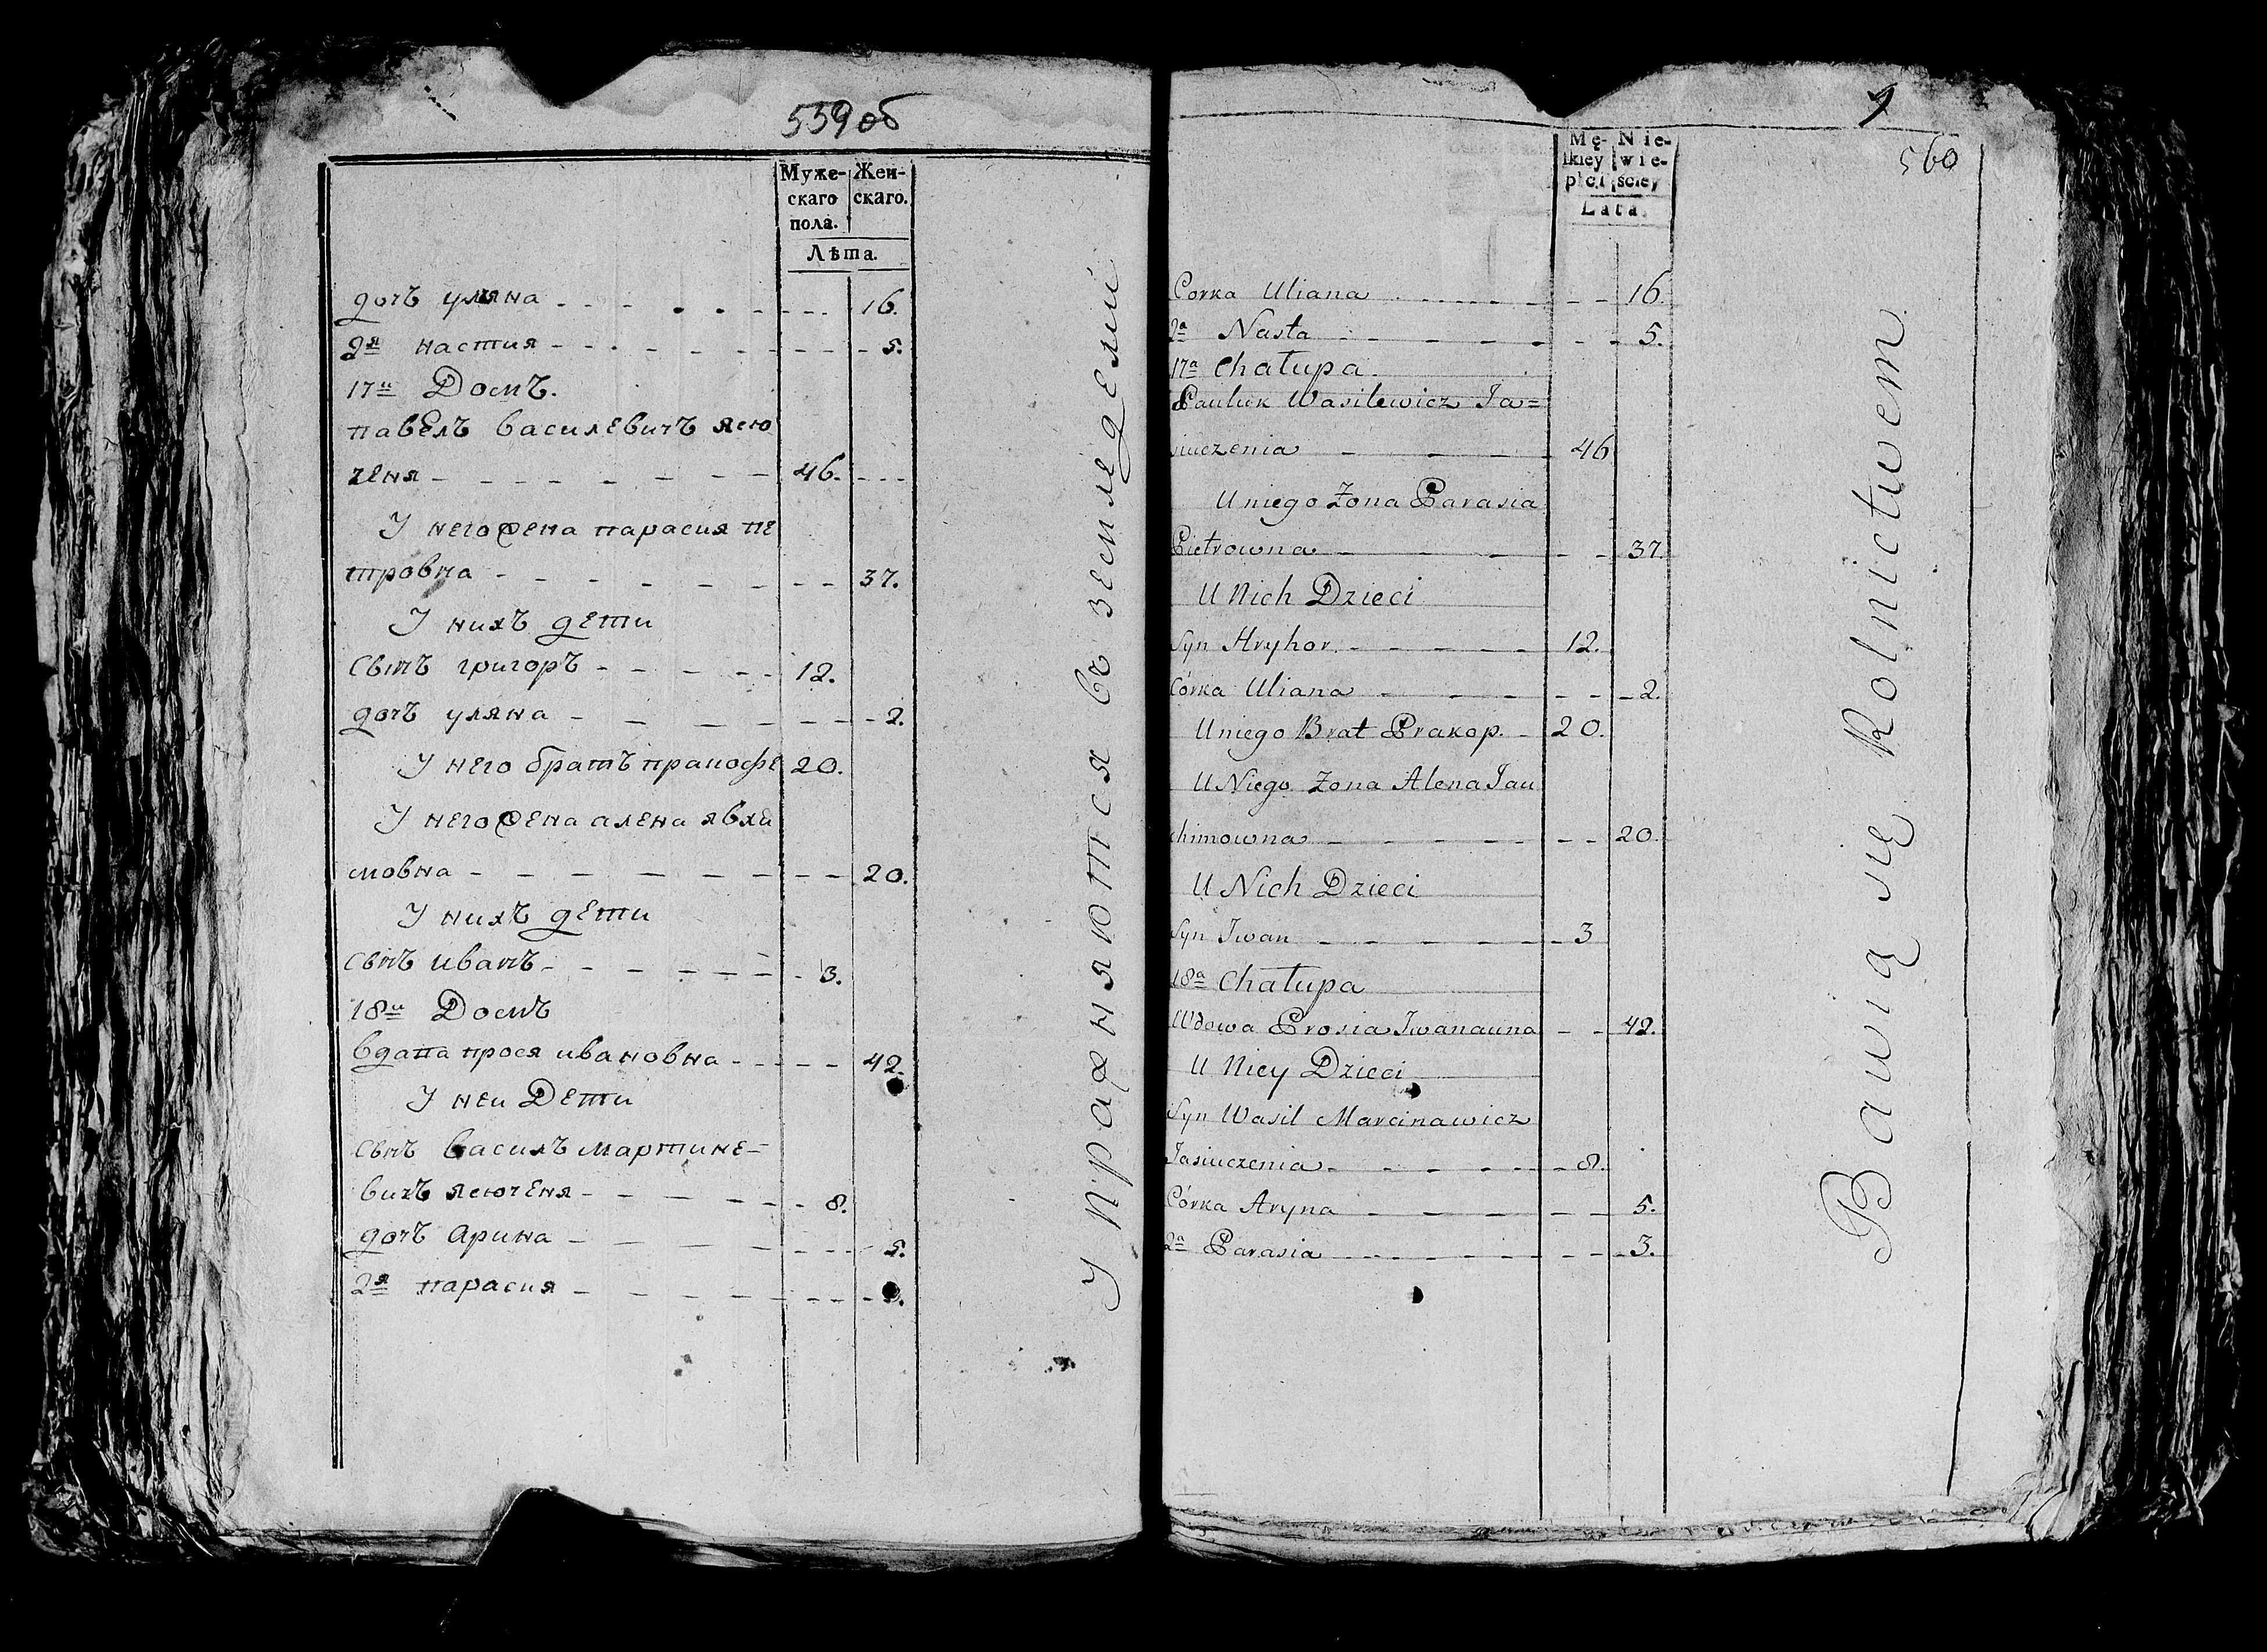 559об
Муже-
скаго
пола.
Жен-
скаго.
Лѣта.
дочъ уляна - - - - - - 16.
2я настия - - - - - - 5.
17й Домъ.
павелъ василевичъ ясю
ченя - - - - - - 46. - - -
У него жена парасия пе
тровна - - - - - - 37.
У нихъ дети
Сынъ григоръ - - - - - 12.
дочъ уляна - - - - - - 2.
У него братъ 20.
У него жена алена явхи
мовна - - - - - - 20.
У нихъ дети
Сынъ иванъ - - - - - - 3.
18й Домъ
вдава прося ивановна - - - - 42.
У неи Дети
Сынъ василъ мартине-
вичъ ясюченя - - - - - 8.
дочъ арина - - - - - - 5.
2я парасия - - - - - -
Упражняются въ земледелии
9
560
Mę-
skiey
płci
Nie-
wie-
sciey
Lata.
Corka Uliana - - - - - - 16.
2a Nasta - - - - - - 5.
17a Chałupa.
Pauluk Wasilewicz Ja=
siuczenia - - - - 46
U niego Żona Parasia
Pietrowna - - - - - - 37.
U Nich Dzieci
Syn Hryhor. - - - - - 12.
Córka Uliana - - - - - - 2.
U niego Brat Prakop. - 20.
U Niego Żona Alena Jau
chimowna - - - - - - 20.
U Nich Dzieci
Syn Jwan - - - - - - 3
18a Chałupa
Wdowa Prosia Jwanauna - - 42.
U Niey Dzieci
Syn Wasil Marcinawicz
Jasiuczenia - - - - - 8.
Córka Aryna - - - - - - 5.
2a Parasia - - - - - - 3.
Bawią się Rolnictwem